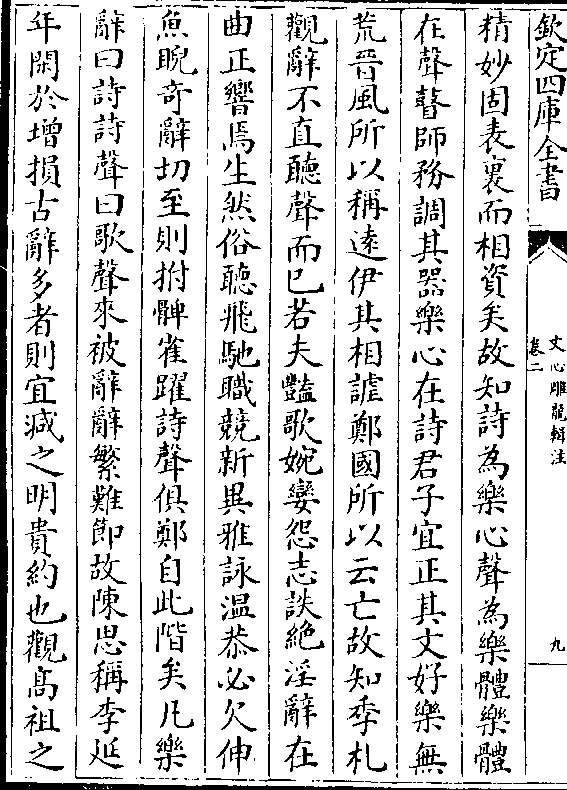 欽定四庫全書
文心雕龍輯注
卷二
九
精妙固表裏而相資矣故知詩為樂心聲為樂體樂體
在聲瞽師務調其器樂心在詩君子宜正其文好樂無
荒晉風所以稱逺伊其相謔鄭國所以云亡故知季札
觀辭不直聽聲而已若夫豔歌婉孌怨志訣絶淫辭在
曲正響焉生然俗聽飛馳職競新異雅詠温恭必欠伸
魚睨奇辭切至則拊髀雀躍詩聲俱鄭自此階矣凡樂
辭曰詩詩聲曰歌聲來被辭辭繁難節故陳思稱李延
年閑於增損古辭多者則宜減之明貴約也觀髙祖之